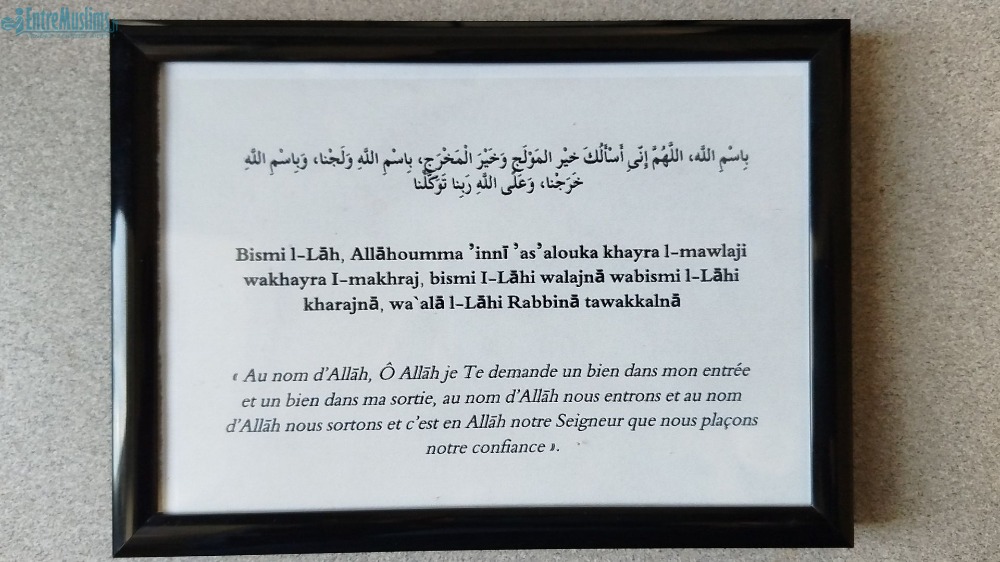 EntreMuslims
بِاسْمِ اللَّه، اللَّهُمَّ إِنِّي أَسْأَلُكَ خيْر المَوْلَجِ وَخَيْرَ الْمَخْرَجِ، بِاسْمِ اللَّهِ وَلَجْنا، وَبِاسْمِ اللَّهِ
خَرَجْنا، وَعَلَى اللَّهِ رَبِنا تَوَكَّلْنا
Bismi l-Lāh, Allāhoumma ’innī ’as’alouka khayra l-mawlaji
wakhayra I-makhraj, bismi I-Lāhi walajnā wabismi l-Lāhi
kharajnā, wa`alā l-Lāhi Rabbinā tawakkalnā
« Au nom d’Allāh, Ô Allāh je Te demande un bien dans mon entrée
et un bien dans ma sortie, au nom d’Allāh nous entrons et au nom
d’Allāh nous sortons et c’est en Allāh notre Seigneur que nous plaçons
notre confiance ».